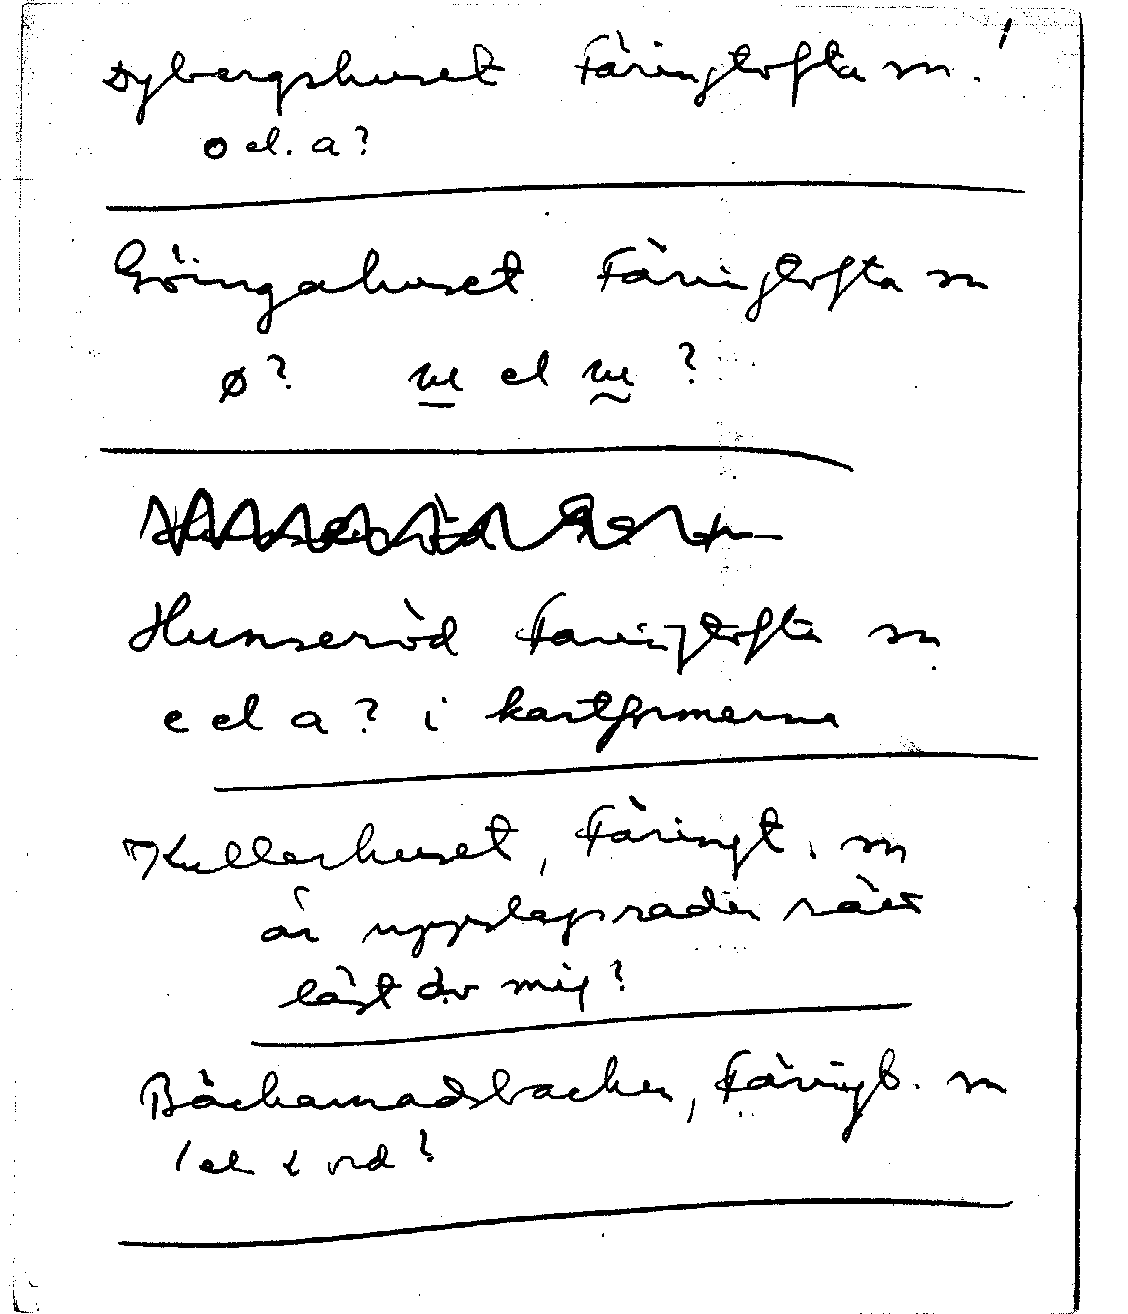 1
Dybergshuset Färingtofta sn.
o el. a?
Göingahuset Färingtofta sn
ø? ve el ve ?
Hunseröd Färingtofta sn
e el a? i kartformerna
Kullerhuset, Färingt. sn
är uppslagsraden rätt
läst av mig?
Bäckamadsbacken, Färingt. sn
1 el 2 ord?